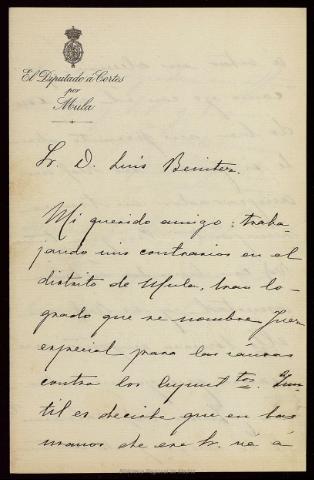 El Diputado á Cortes
por
Mula
Sr. D. Luis Benitez.
Mi querido amigo: traba-
jando mis contrarios en el
distrito de Mula, han lo-
grado que se nombre Juez
especial para las causas
contra los Ayunt.tos. Inu-
til es decirte que en las
manos de ese Sr. vá á